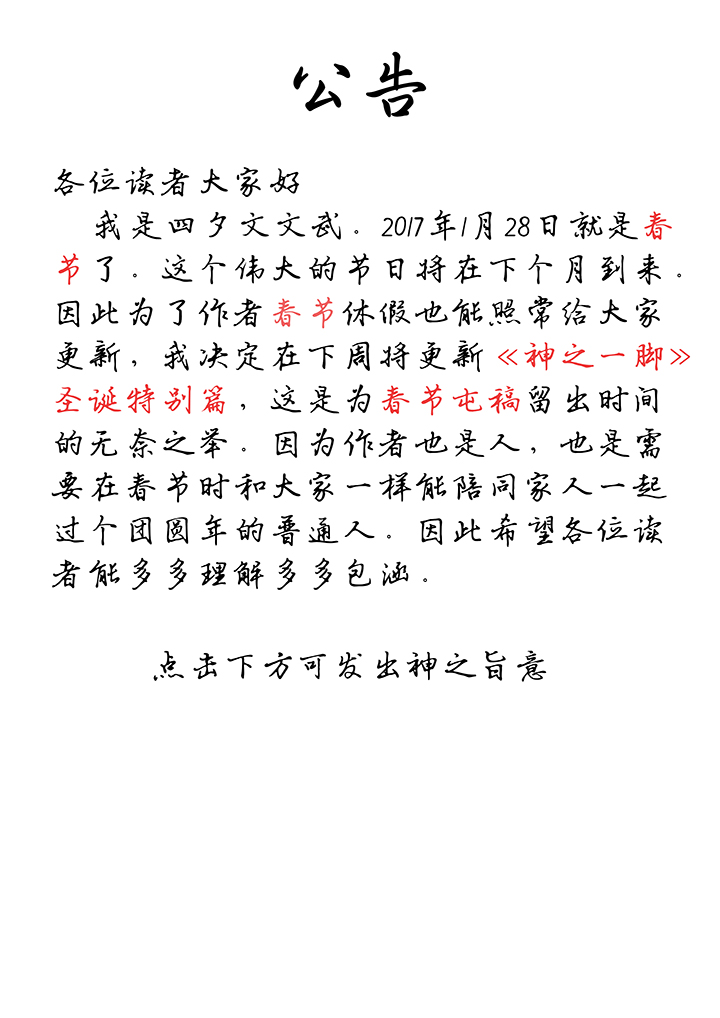 公告
各位读者大家好
我是四夕文文武。2017年1月28日就是春
节了。这个伟大的节日将在下个月到来。
因此为了作者春节休假也能照常给大家
更新，我决定在下周将更新《神之一脚》
圣诞特别篇，这是为春节屯稿留出时间
的无奈之举。因为作者也是人，也是需
要在春节时和大家一样能陪同家人一起
过个团圆年的普通人。因此希望各位读
者能多多理解多多包涵。
点击下方可发出神之旨意